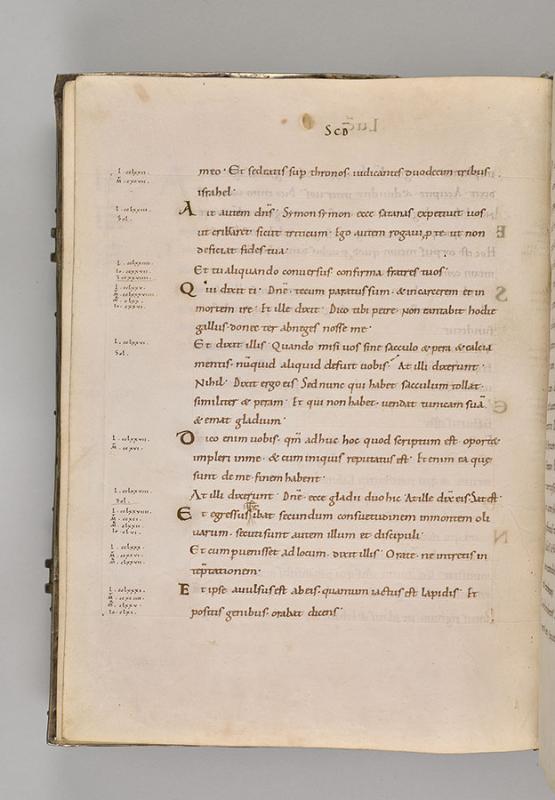 Scd
meo · Et sedeatis sup thronos iudicantes duodecim tribus
israhel ·
A it autem dn̄s · Symon symon ecce satanas expetiuit uos
ut cribraret sicut triticum · Ego autem rogaui p te ut non
deficiat fides tua ·
Et tu aliquando conuersus confirma fratres tuos ·
Q ui dixit ei · Dn̄e tecum paratus sum · & in carcerem et in
mortem ire · Et ille dixit · Dico tibi petre · Non cantabit hodie
gallus · donec ter abneges nosse me ·
Et dixit illis · Quando misi uos sine sacculo & pera & calcia
mentis · nūquid aliquid defuit uobis · At illi dixerunt ·
Nihil · Dixit ergo eis · Sed nunc qui habet sacculum tollat ·
similiter & peram · Et qui non habet · uendat tunicam suā
& emat gladium ·
D ico enim uobis · qm̄ adhuc hoc quod scriptum est · oport&
impleri in me · & cum iniquis reputatus est · Etenim ea que
sunt de me finem habent ·
At illi dixerunt · Dn̄e · ecce gladii duo hic · At ille dix̄ eis · Sat est ·
E t egressus ibat secundum consuetudinem in montem oli
uarum · secuti sunt autem illum et discipuli ·
Et cum peruenisset ad locum · dixit illis · Orate · ne intretis in
tēptationem ·
E t ipse auulsus est ab eis · quantum iactus est lapidis · Et
positis genibus · orabat dicens ·